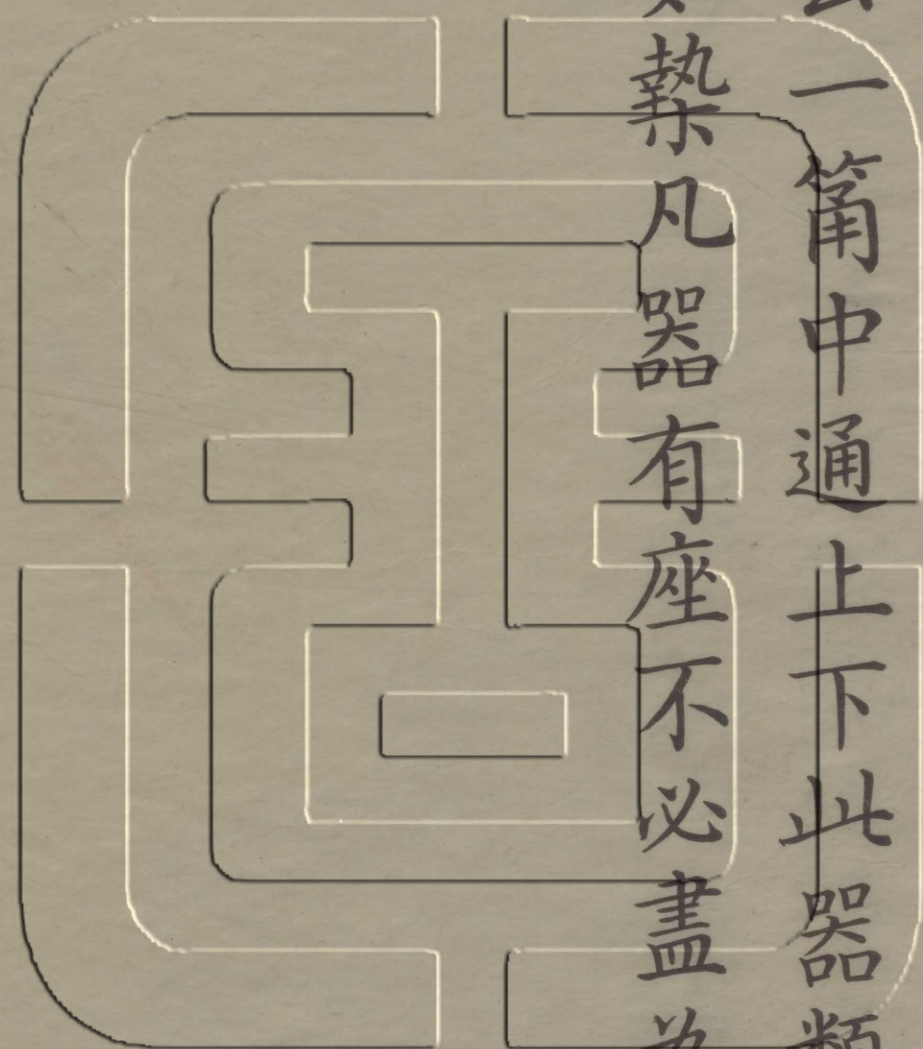 一筩中通上下此器類
槷凡器有座不必盡為